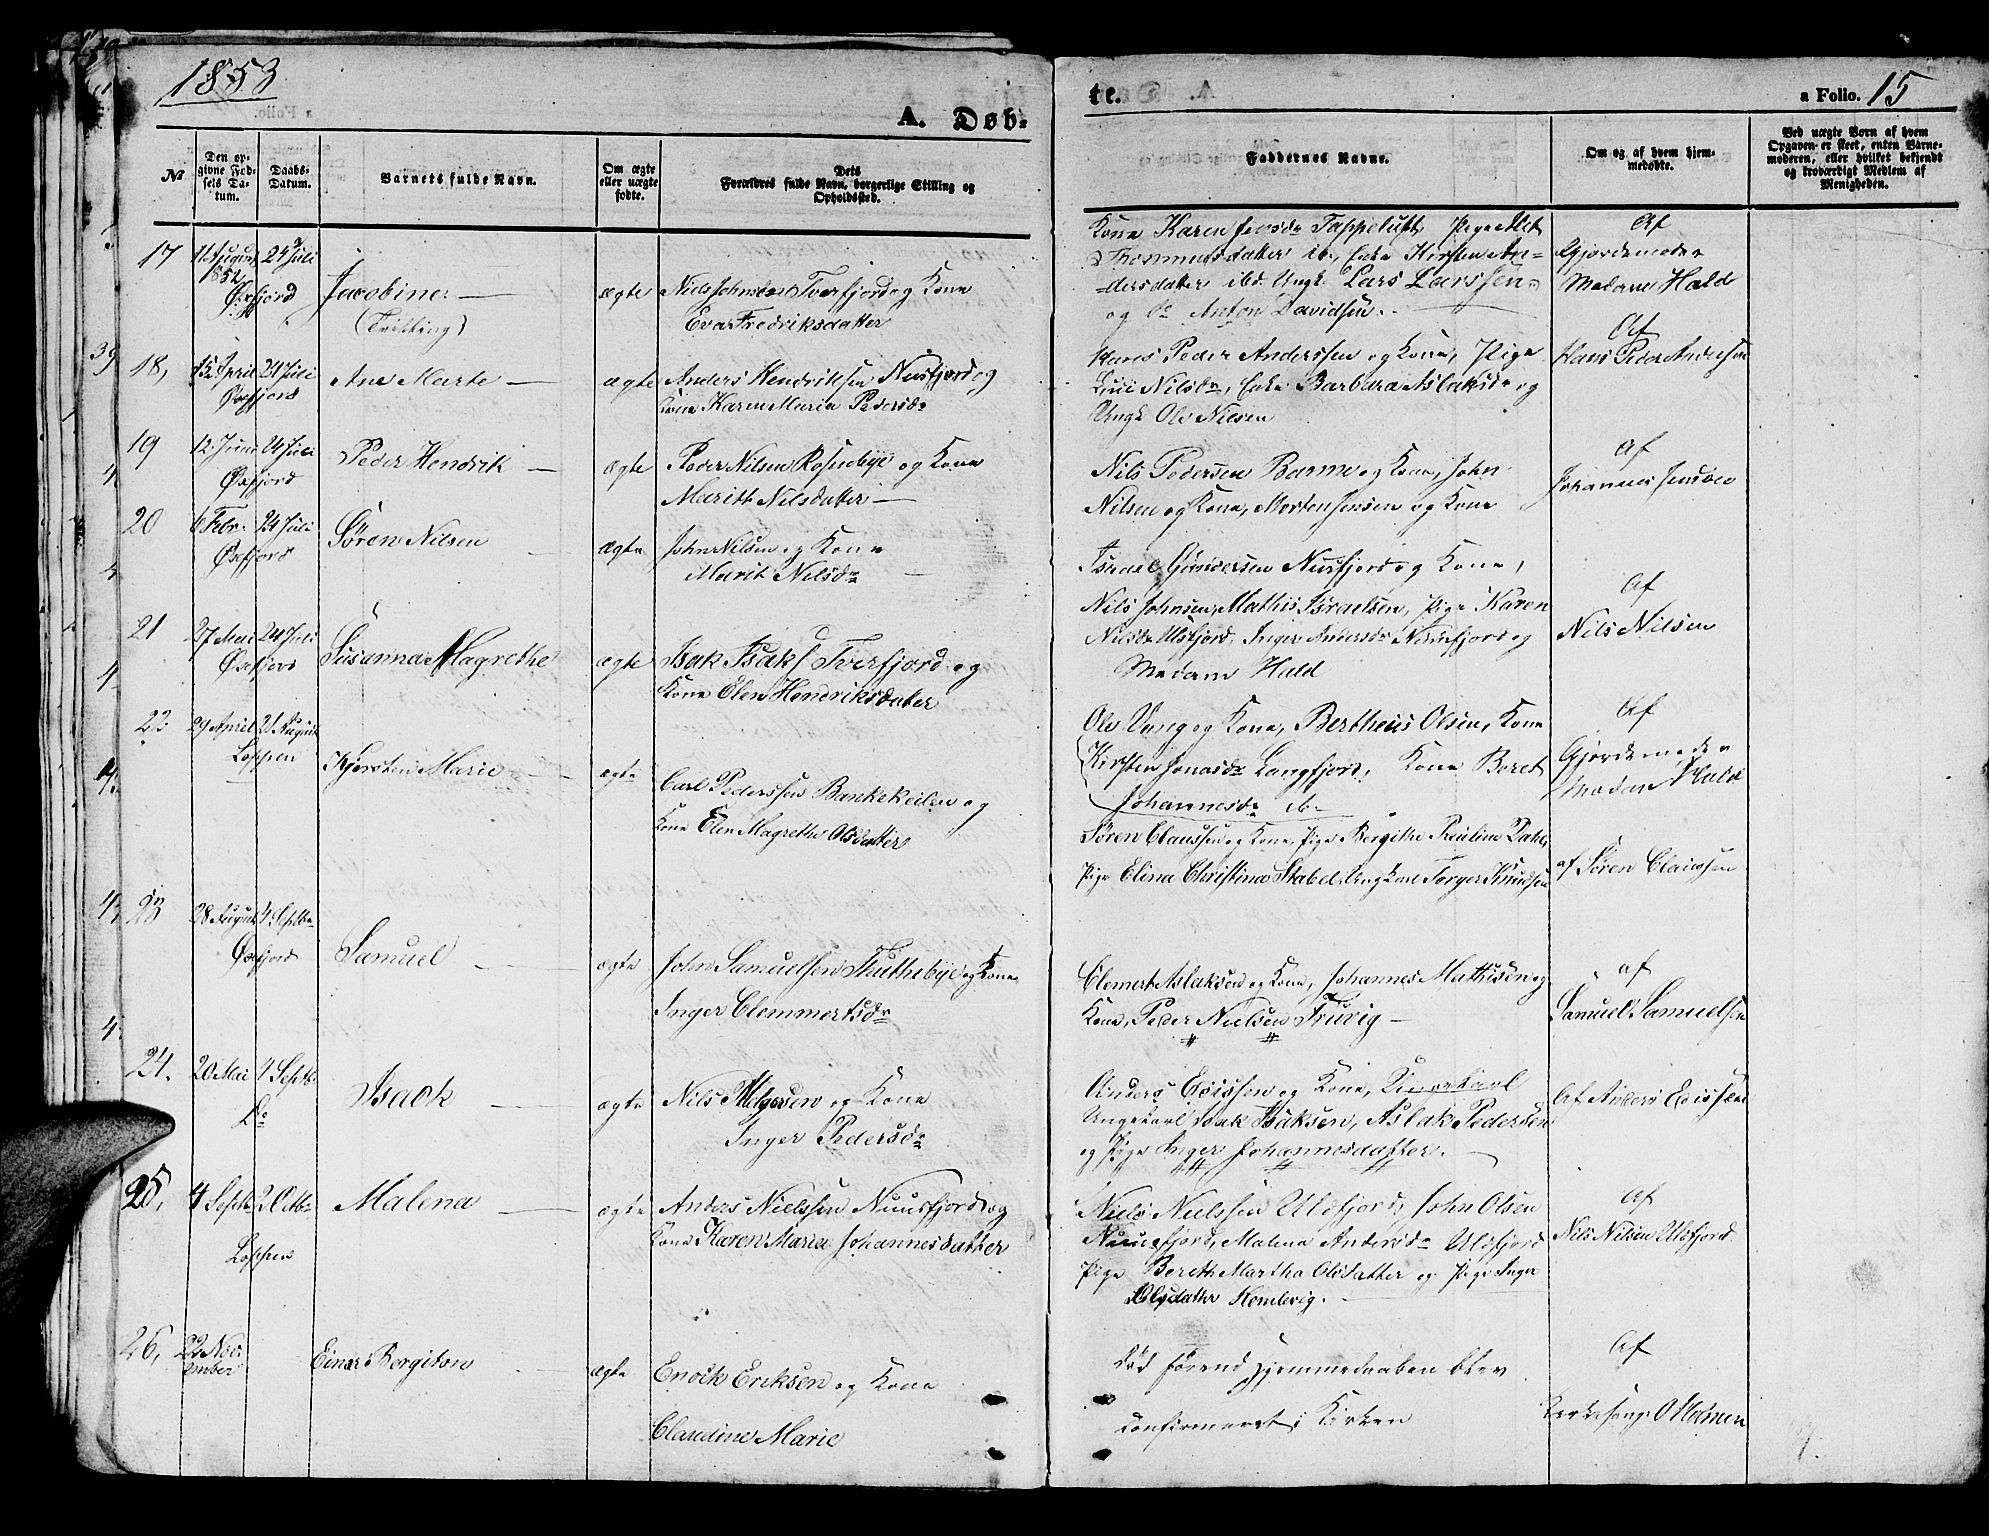 1853
A. Døb-
te.
a Folio. 15
№
Den op-
givne Fød-
sels Da-
tum.
Daabs-
Datum.
Barnets fulde Navn.
Om ægte
eller uægte
fødte.
Dets
Forældres fulde Navn, borgerlige Stilling og
Opholdssted.
Faddernes Navne.
Om og af hvem hjem-
medøbte.
Ved uægte Børn af hvem
Opgaven er skeet, enten Barne-
moderen, eller hvilket bekjendt
og troværdigt Medlem af
Menigheden.
17
11 August 24 Juli
1852
Øxfjord
Jacobine
(Tvilling)
ægte
Niels Johnsen Tverfjord og Kone
Eva Fredriksdatter
Kone Karen Tappeluft, Pige
Thommesdatter ib., Enke Kirsten An-
dersdatter ibd. Ungk. Lars Larssen
og do Anton Davidsen.
Af
Gjordemoder
Madame Hald
18,
15 April 24 Juli
Øxfjord
Ane Marte
ægte
Anders Hendriksen Nusfjord og
Kone Karen Maria Pedersdr
Hans Peder Anderssen og Kone, Pige
Nilsdr, Enke Barbara Aslaksdr og
Ungk Ole Nielsen
Af
Hans Peder Andersen
19
12 Juni 24 Juli
Øxfjord
Peder Hendrik
ægte
Peder Nilsen og Kone
Marith Nilsdatter
Nils Pedersen og Kone, John
Nilsen og Kone, Morten Jensen og Kone
Af
Johannes
20
6 Febr. 24 Juli
Øxfjord
Søren Nilsen
ægte
John Nilsen og Kone
Marit Nilsdr
Israel Gundersen Nusfjord og Kone,
Nils Johnsen, Mathis Israelsen, Pige Karen
Nilsdr Ulsfjord, Inger Andersdr Nusfjord og
Madam Hald
Af
Nils Nilsen
21
27 Mai 24 Juli
Øxfjord
Susanna Magrethe
ægte
Isak Isaks. Tverfjord og
Kone Elen Hendriksdatter
Ole Vang og Kone, Bertheus Olsen, Kone
Kirsten Jonasdr Langfjord, Kone Beret
Johannesdr ib
Af
Gjordemoder
Madam Hald
22
29 April 21 August
Loppen
Kjersten Marie
ægte
Carl Pederssen Bankekeilen og
Kone Elen Magrethe Olsdatter
Søren Claussen og Kone, Pige Bergithe Paulina Dahl,
Pige Elina Christina Stabel, Ungkarl Torger Knudsen
af Søren Claussen
23
28 August 4 Septbr
Øxfjord
Samuel
ægte
John Samuelsen og Kone
Inger Clemmertsdr
Clemert Aslaksen og Kone, Johannes Mathisen og
Kone, Peder Nielsen Truvig
af
Samuel Samuelsen
24.
20 Mai 4 Septb.
Do
Isack
ægte
Nils og Kone
Inger Pedersdr
Anders Edissen og Kone, Ungekarl
Ungekarl Isak Isaksen, Aslak Pedersen
og Pige Inger Johannesdatter.
Af Anders Edissen
25,
4 Septb 2 Octbr
Loppen
Malena
ægte
Anders Nielssen Nuusfjord og
Kone Karen Maria Johannesdatter
Niels Nielssen Ulsfjord, John Olsen
Nuusfjord, Malena Andersdr Ulsfjord
Pige Bereth Martha Olsdatter og Pige Inger
Olsdatter Komlevig.
Af
Nils Nilsen Ulsfjord
26,
22 Nov-
ember
Einar Bergiton
ægte
Enock Eriksen og Kone
Claudine Marie
Død førend Hjemmedaaben blev
confirmeret i Kirken
Af
Kirkesang. O Holmen